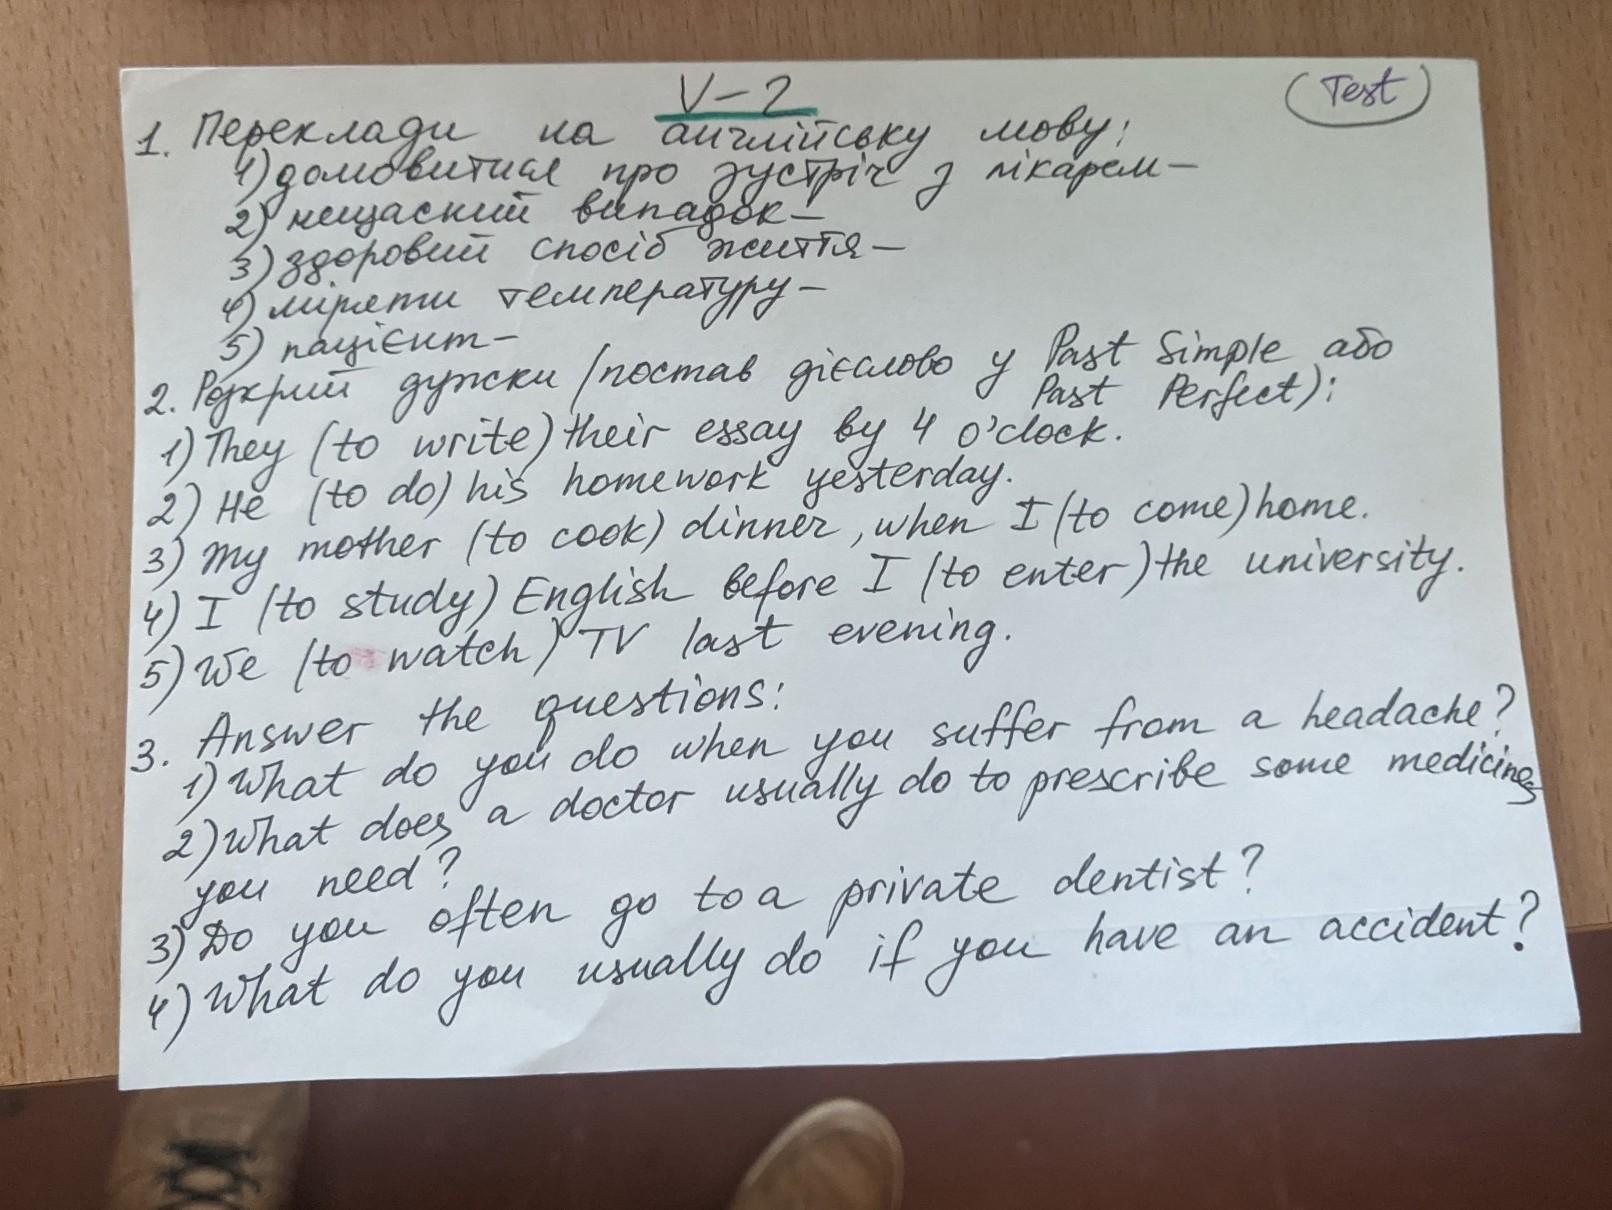 V-2
(Test)
1. Переклади на англійську мову:
1) домовитися про зустріч з лікарем –
2) нещасний випадок –
3) здоровий спосіб життя –
4) міряти температуру –
5) пацієнт –
2. Розкрий дужки (постав дієслово у Past Simple або
Past Perfect):
1) They (to write) their essay by 4 o'clock.
2) He (to do) his homework yesterday.
3) My mother (to cook) dinner, when I (to come) home.
4) I (to study) English before I (to enter) the university.
5) We (to watch) TV last evening.
3. Answer the questions:
1) What do you do when you suffer from a headache?
2) What does a doctor usually do to prescribe some medicines
you need?
3) Do you often go to a private dentist?
4) What do you usually do if you have an accident?